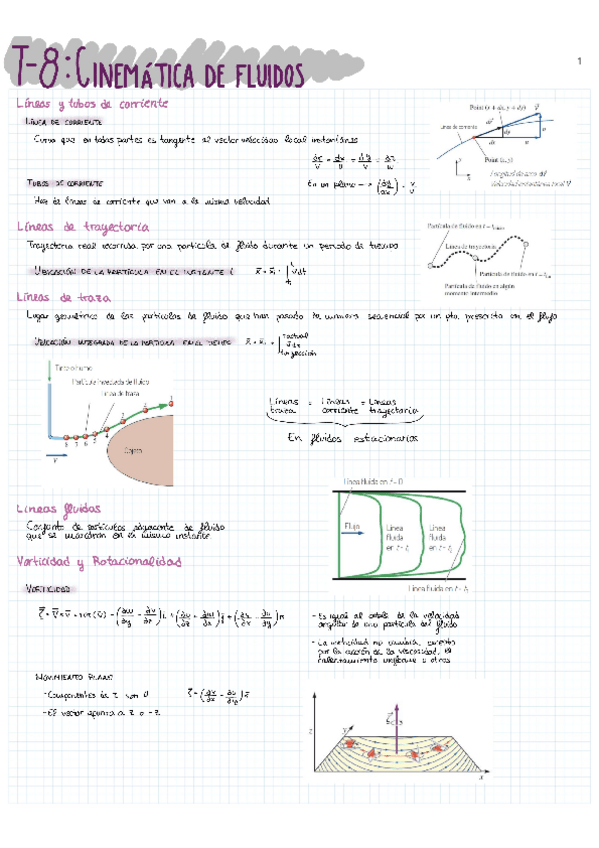 T-8: CINEMÁTICA DE FLUIDOS
1
Líneas y tubos de corriente
LÍNEA DE CORRIENTE
Curva que en todas partes es tangente al vector velocidad local instantáneo
dr/V = dx/u = dy/v = dz/w
Point (x + dx, y + dy)
Línea de corriente
Point (x, y)
TUBOS DE CORRIENTE
En un plano → (dy/dx) = v/u
Haz de líneas de corriente que van a la misma velocidad
Líneas de trayectoria
Trayectoria real recorrida por una partícula de fluido durante un periodo de tiempo
UBICACIÓN DE LA PARTÍCULA EN EL INSTANTE t
Partícula de fluido en t = t
Línea de trayectoria
Partícula de fluido en t = t
Partícula de fluido en algún
momento intermedio
Líneas de traza
Lugar geométrico de las partículas de fluido que han pasado de manera secuencial por un pto. prescrito en el flujo
UBICACIÓN INTEGRADA DE LA PARTÍCULA EN EL TIEMPO
t actual
t inyección
Tinte o humo
Partícula inyectada de fluido
Línea de traza
Objeto
V
Líneas = Líneas = Líneas
traza corriente trayectoria
En fluidos estacionarios
Líneas fluidas
Conjunto de partículas adyacente de fluido
que se marcaron en el mismo instante
Línea fluida en t = 0
Flujo
Línea
fluida
en t = t₁
Línea
fluida
en t = t₂
Línea fluida en t = t₃
Vorticidad y Rotacionalidad
VORTICIDAD
ζ = ∇×V = rot(V) = (∂w/∂y - ∂v/∂z)i + (∂u/∂z - ∂w/∂x)j + (∂v/∂x - ∂u/∂y)k
- Es igual al doble de la velocidad
angular de una partícula del fluido
- La vorticidad no cambia, excepto
por la acción de la viscosidad, el
calentamiento no uniforme u otros
MOVIMIENTO PLANO
- Componentes de z son 0
ζ = (∂v/∂x - ∂u/∂y)k
- El vector apunta a z o -z
z
y
x